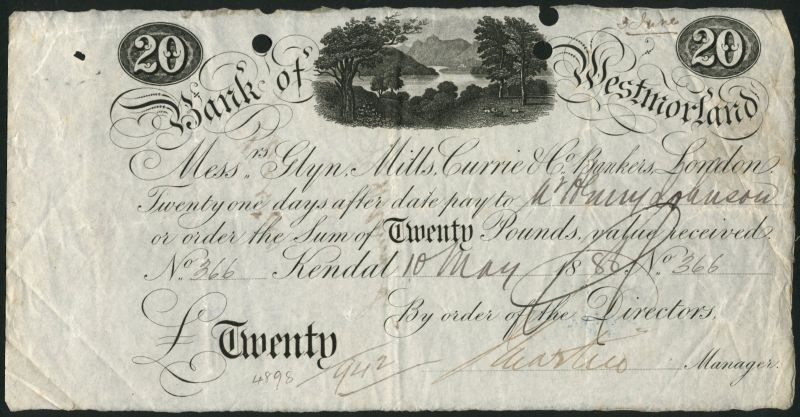 20 20
3 June
Bank of Westmorland
Messrs. Glyn, Mills, Currie & Co. Bankers, London.
Twenty one days after date pay to Mr Henry Johnson
or order the Sum of Twenty Pounds, value received.
No. 366 Kendal 10 May 1888. No. 366
By order of the Directors,
£ Twenty
4898 /942 Manager.